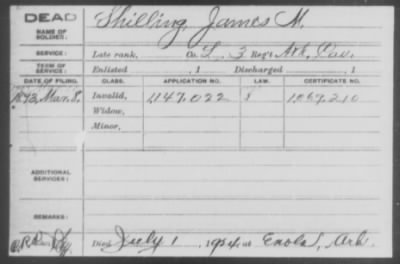 DEAD
NAME OF SOLDIER:
Shilling, James M.
SERVICE:
Late rank, Co. L, 3 Reg't Ark. Cav.
TERM OF SERVICE:
Enlisted , 1 Discharged , 1
DATE OF FILING. CLASS. APPLICATION NO. LAW. CERTIFICATE NO.
1893, Mar. 8. Invalid, 1147.022 1.067.210
Widow,
Minor,
ADDITIONAL SERVICES:
REMARKS:
Died July 1, 1904, at Enola, Ark.